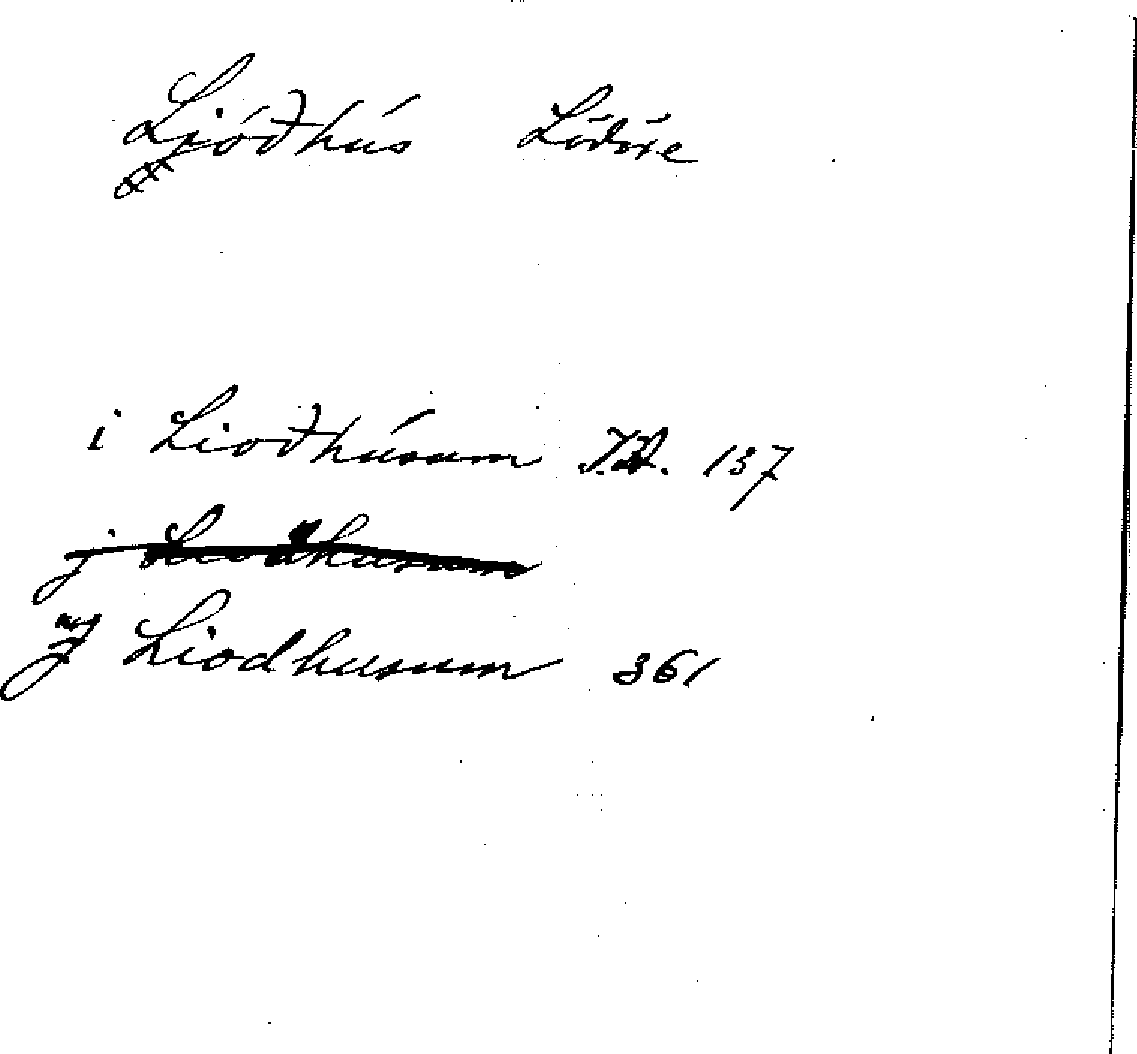 Ljóðhús Lödöse
i Lioðhúsum 137
j Liodhusum
J Liodhusum 361